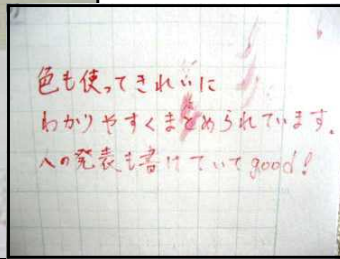 色も使ってきれいに
わかりやすくまとめられています。
人の発表も書けていてgood!